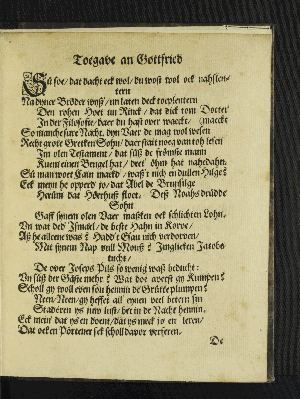 Toegabe an Gottfried
Sü soe/ dat dacht eck wol/ du wost wol ock nahslen-
tern
Na dyner Bröder wyß/ un laten deck toeplentern
Den rohen Hoet un Rinck/ dat dick tom Docter
In der Filosofie/ daer du hast over waeckt/ (maeckt
So manche sare Nacht. dyn Vaer de mag wol wesen
Recht grote Grecken Sohn/ daer steit noeg van toh lesen
Im olen Testament/ dat süß de frömste mann
Kuem einen Bengel har/ deet öhm hat nahedahn.
Sü man woet Cain markd/ waß't nich en dullen Hilge?
Eck meyn he opperd so/ dat Abel de Brunsilge
Herüm dat Hörrhuß floet. Deß Noahs drüdde
Sohn
Gaff synem olen Vaer maßken ock schlichten Lohn.
Un wat ded' Ismael/ de beste Hahn in Korve/
Aß he alleene was? Hadd't Esau nich verdorven/
Mit synem Nap vull Moiß? Jinglieken Jacobs
tucht/
De over Josephs Pils so wenig waß beducht:
Un süß der Gäste mehr? Wat doe averst gy Kumpen?
Scholl gy woll even sou hennin de Grütte plumpen?
Neen/Neen/gy heffet all' eynen veel betern sin
Staderen ys new lust/ her in de Nacht hennin.
Eck mein' dat ys en doent/ dat ys meck so en leren/
Dat oeken Pörtener seck scholl davor verseren.
De